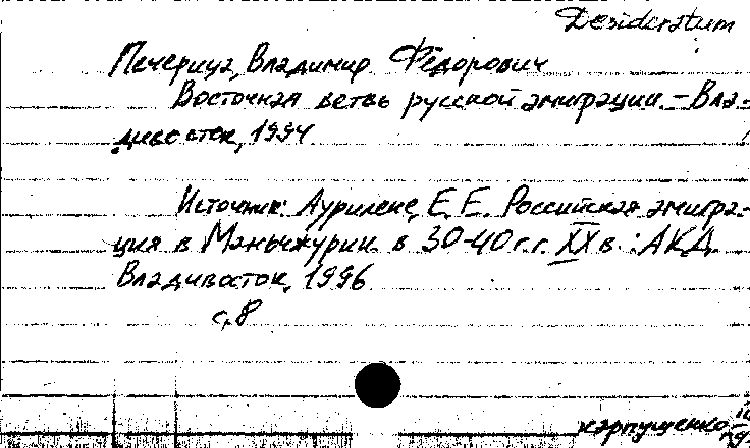 Desideratum
Печерица, Владимир Фёдорович
Восточная ветвь русской эмиграции. – Вла-
дивосток, 1994.
Источник: Аурилене, Е. Е. Российская эмигра-
ция в Маньчжурии в 30-40 г.г. XX в.: АКД.
Владивосток, 1996
с. 8
Карпущенко